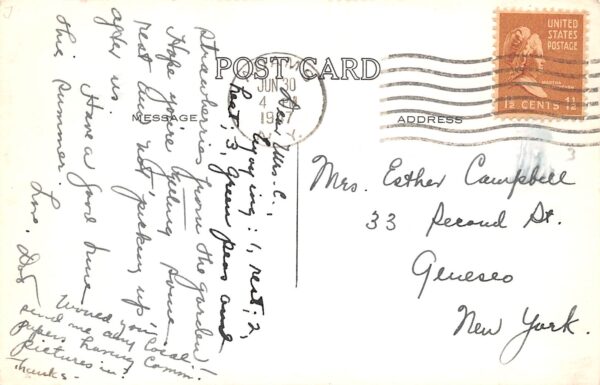 POST CARD
MESSAGE
ADDRESS
UNITED
STATES
POSTAGE
MARTHA
1½ CENTS 1½
JUN 30
4
Dear Mrs. C.,
Enjoying: 1, rest; 2,
rest; 3, green peas and
strawberries from the garden!
Hope you're getting some
rest and not picking up
after us.
Have a good time
this summer. Love, Dot
Would you
send me any local
papers having Comm.
pictures in?
Thanks.
Mrs. Esther Campbell
33 Second St.
Geneseo
New York.